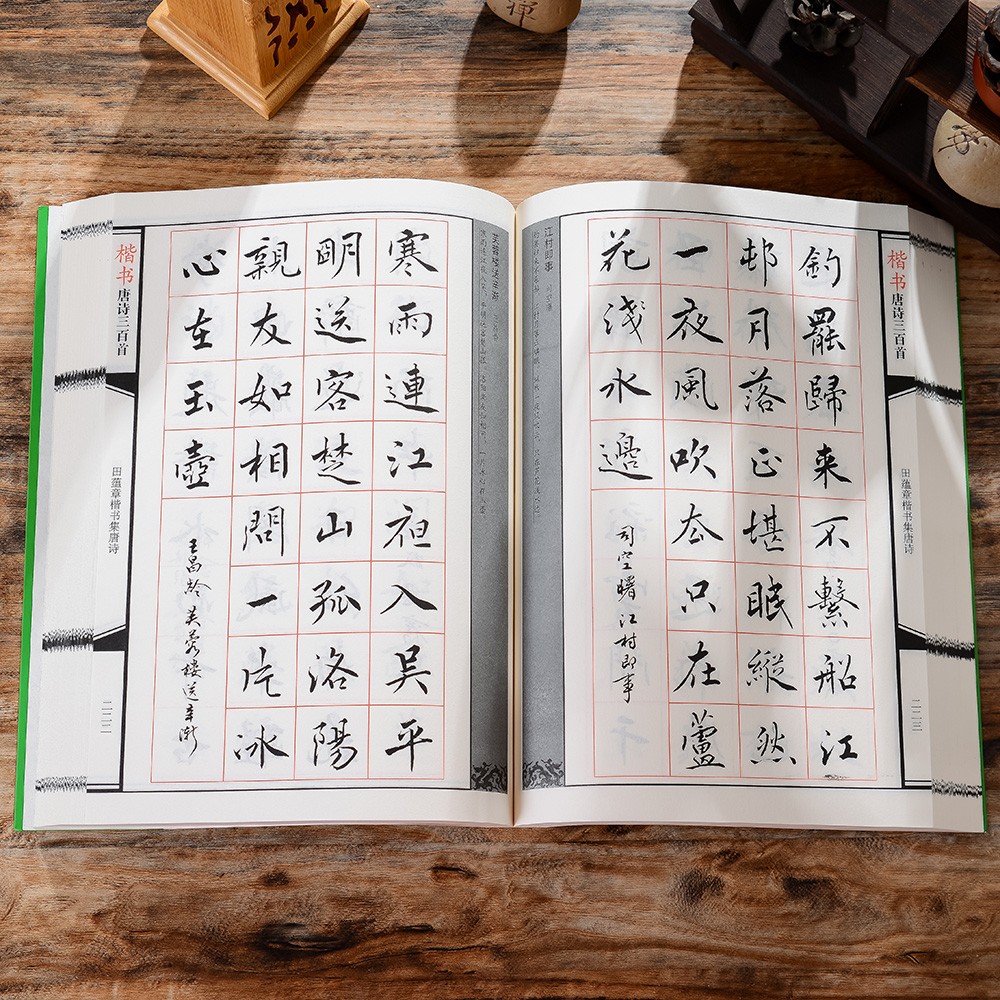 禪
楷书
唐诗三百首
田蕴章楷书集唐诗
二二二
芙蓉楼送辛渐
寒雨連江夜入吴平
明送客楚山孤洛陽
親友如相問一片冰
心在玉壺
王昌龄 芙蓉楼送辛渐
楷书
唐诗三百首
田蕴章楷书集唐诗
二二三
釣罷歸来不繫船江
邨月落正堪眠縱然
一夜風吹去只在蘆
花淺水邊
司空曙 江村即事
江村即事 司空曙